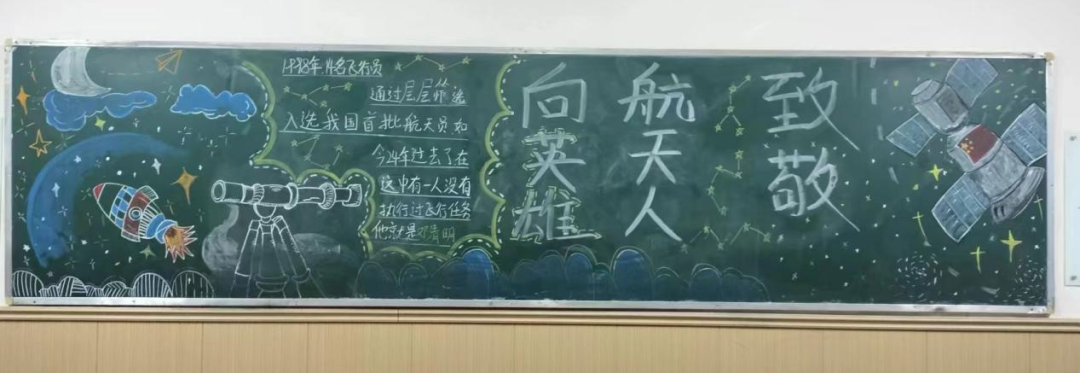 1998年14名飞行员
通过层层筛选
入选我国首批航天员如
今24年过去了在
这中有一人没有
执行过飞行任务
他就是邓清明
向英雄
航天人
致敬